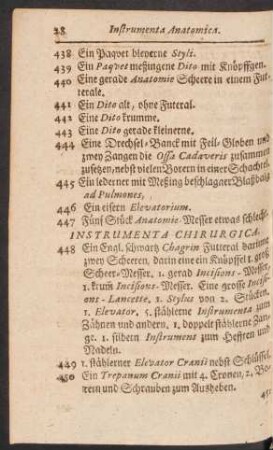 28 Instrumenta Anatomica.
438 Ein Paqvet bleyerne Styli.
439 Ein Paqvet meßingene Dito mit Knöpffgen.
440 Eine gerade Anatomie Scheere in einem Fut-
terale.
441 Ein Dito alt, ohne Futeral.
442 Eine Dito krumme.
443 Eine Dito gerade kleinerne.
444 Eine Drechsel-Banck mit Feil-Globen und
zwey Zangen die Ossa Cadaveris zusammen
zusetzen, nebst vielen Borern in einer Schachtel.
445 Ein lederner mit Meßing beschlagner Blaßbalg
ad Pulmones,
446 Ein eisern Elevatorium.
447 Fünf Stück Anatomie-Messer etwas schlecht
INSTRUMENTA CHIRURGICA.
448 Ein Engl. schwartz Chagrin Futteral darinne
zwey Scheeren, darin eine ein Knüpffel 1. groß
Scheer-Messer, 1. gerad Incisions-Messer,
1. krum Incisions-Messer. Eine große Incisi-
ons-Lancette, 1. Stylus von 2. Stücken,
1. Elevator, 5. stählerne Instrumenta zum
Zähnen und andern, 1. doppelt stählerne Zan-
gt. 1. sildern Instrument zum Hefften und
Nadeln.
449 1. stählerner Elevator Cranii nebst Schlüssel.
450 Ein Trepanum Cranii mit 4. Cronen, 2. Bo-
rern und Schrauben zum Ausheben.